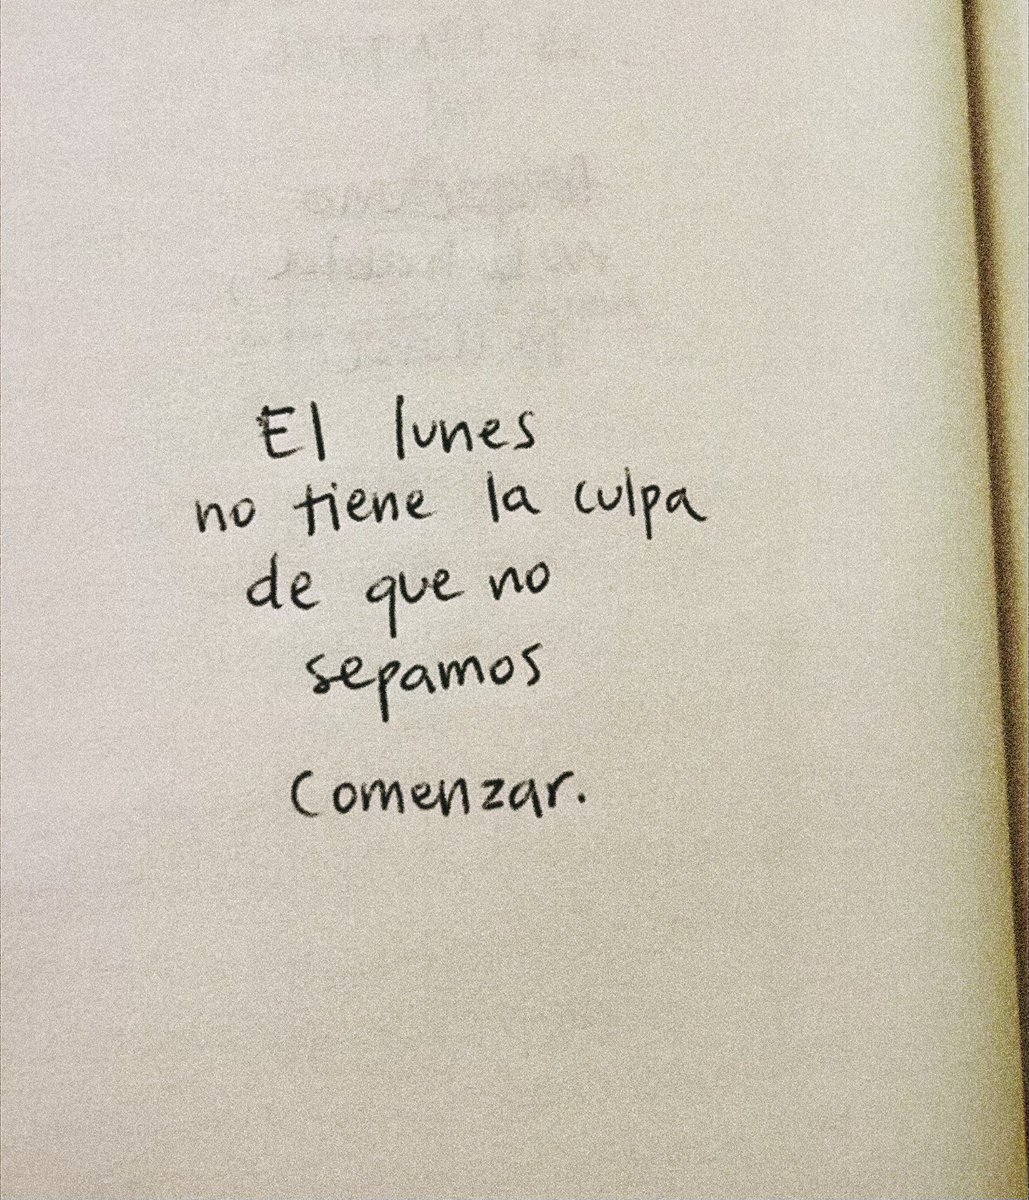 El lunes
no tiene la culpa
de que no
sepamos
comenzar.